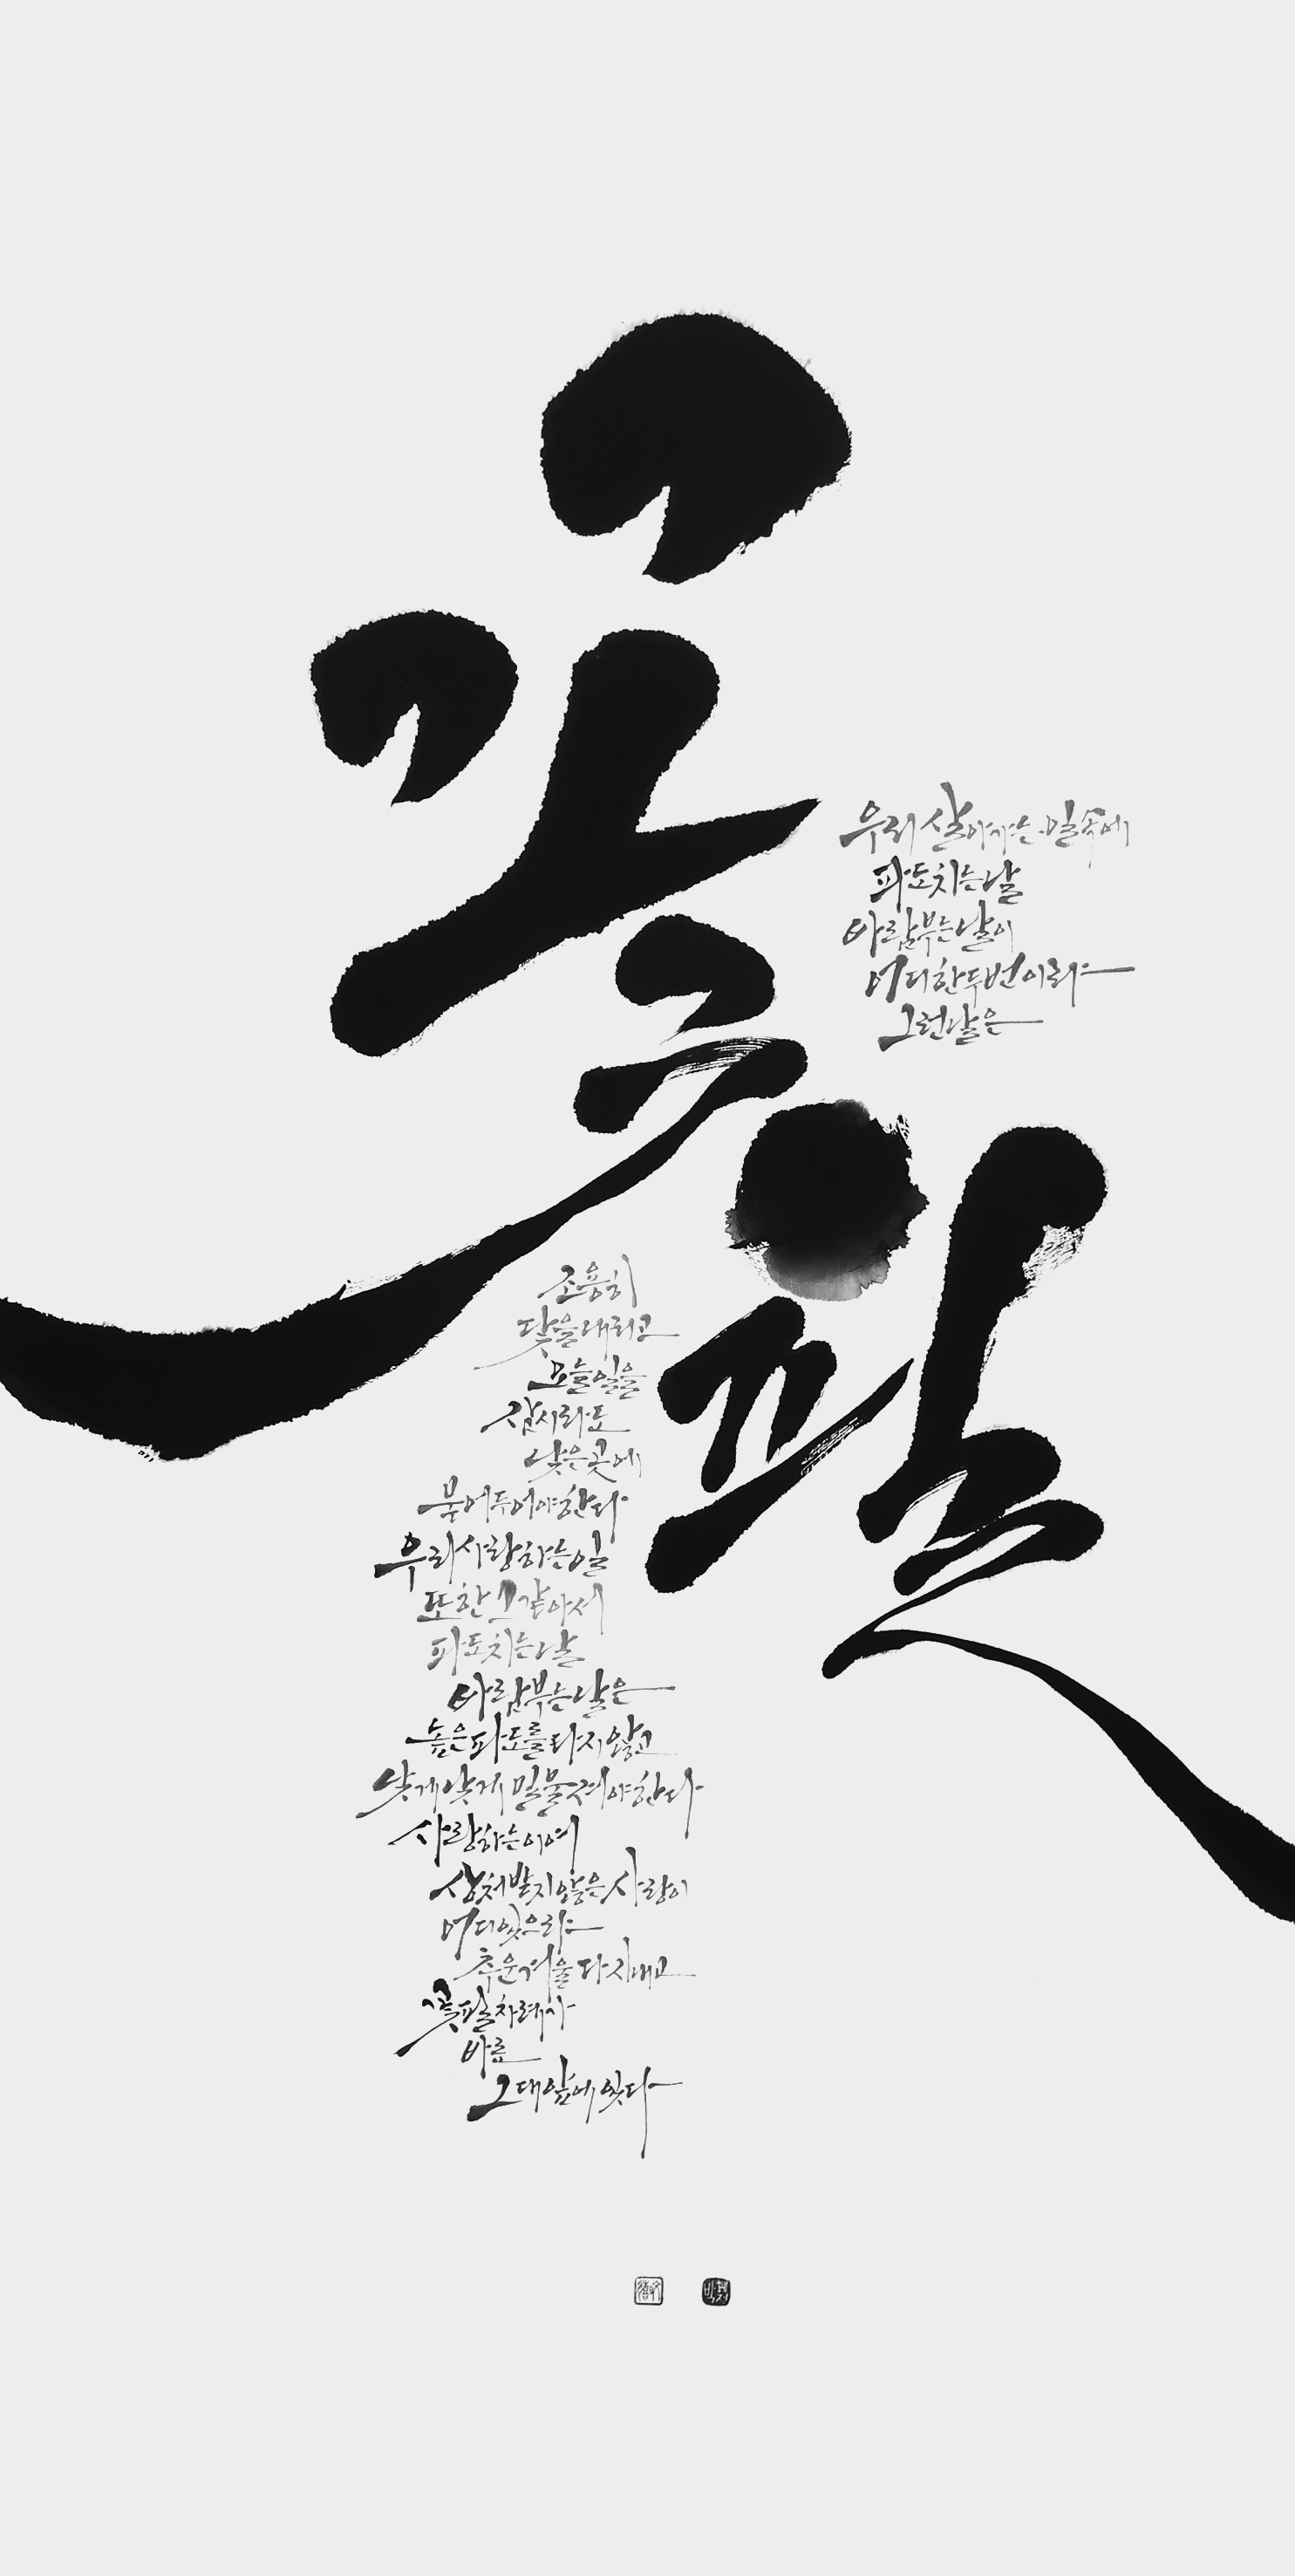 꽃필
우리 살아가는 일 속에
파도치는 날
바람부는 날이
어디 한두번이랴
그런날은
조용히
닻을 내리고
오늘 일을
잠시라도
낮은 곳에
묻어두어야 한다
우리 사랑하는 일
또한 그 같아서
파도치는 날
바람부는 날은
높은 파도를 타지 않고
낮게 낮게 밀물져야 한다
사랑하는 이여
상처받지 않은 사랑이
어디 있으랴
추운 겨울 다 지내고
꽃필 차례가
바로
그대 앞에 있다